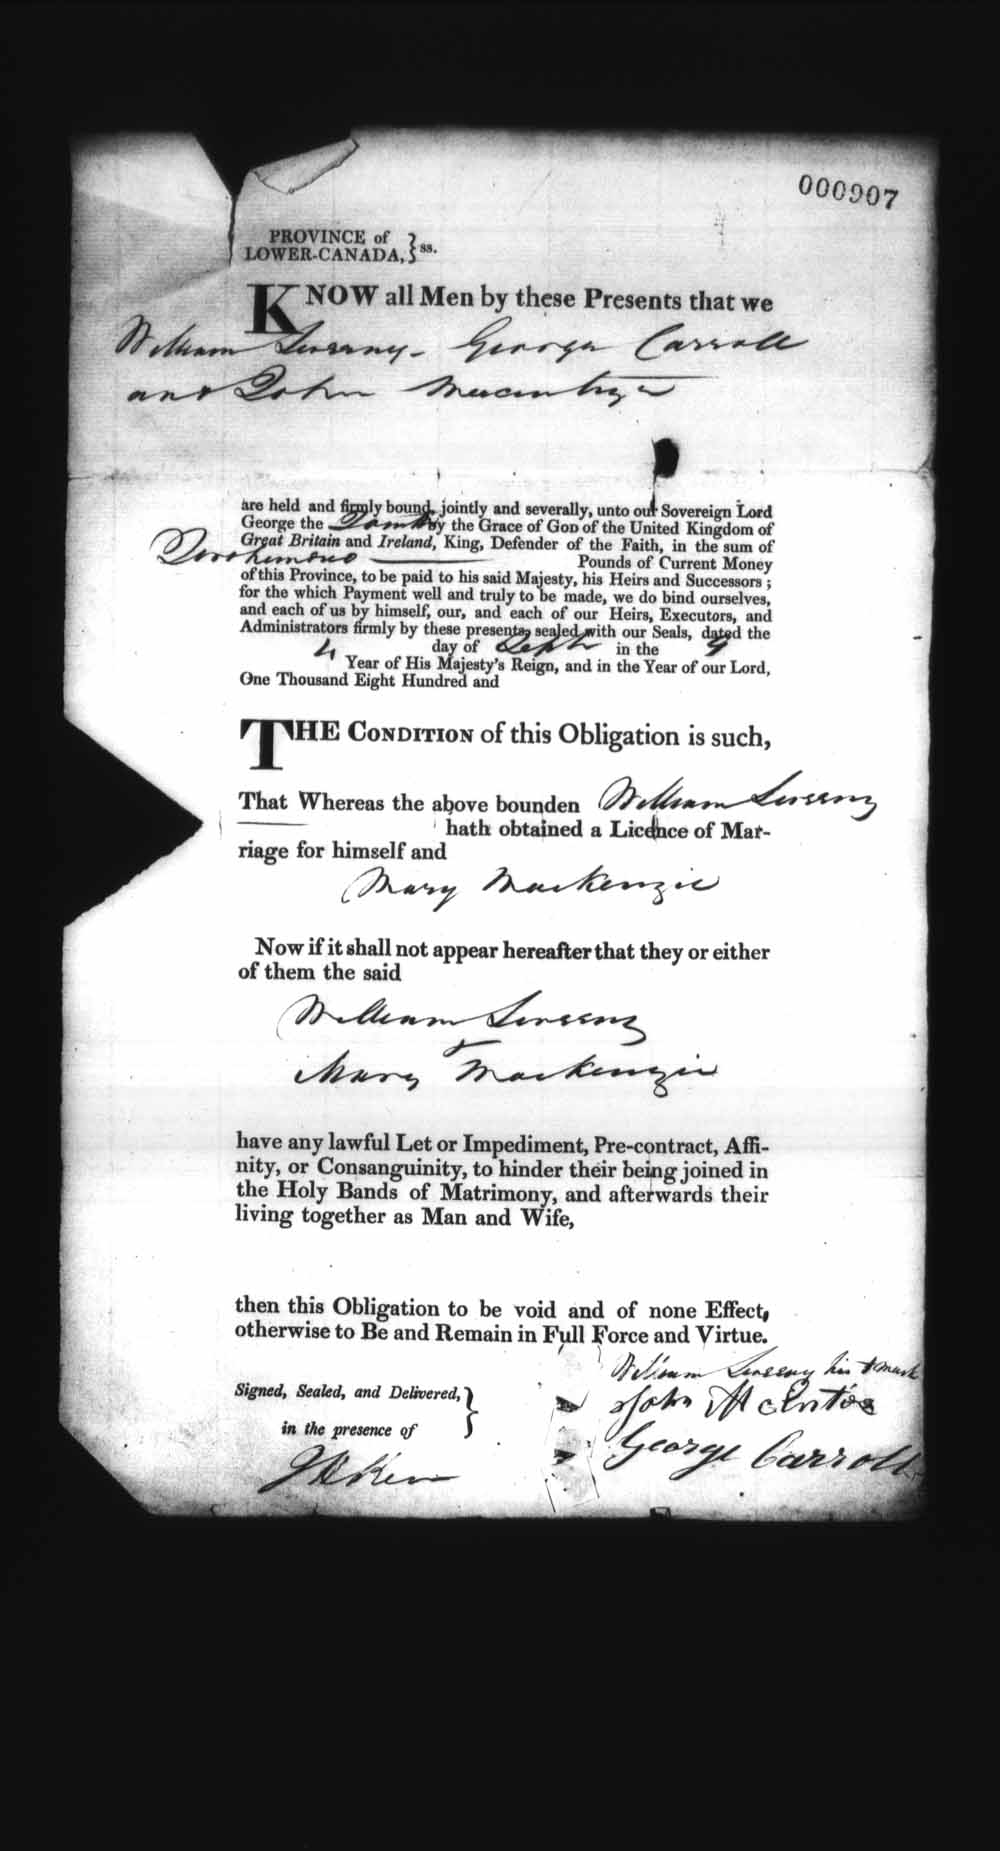 000907
PROVINCE of
LOWER-CANADA, } ss.
KNOW all Men by these Presents that we
William George Carroll
and John
are held and firmly bound, jointly and severally, unto our Sovereign Lord
George the by the Grace of GOD of the United Kingdom of
Great Britain and Ireland, King, Defender of the Faith, in the sum of
Pounds of Current Money
of this Province, to be paid to his said Majesty, his Heirs and Successors ;
for the which Payment well and truly to be made, we do bind ourselves,
and each of us by himself, our, and each of our Heirs, Executors, and
Administrators firmly by these presents, sealed with our Seals, dated the
4 day of Septr in the 9
Year of His Majesty's Reign, and in the Year of our Lord,
One Thousand Eight Hundred and
THE CONDITION of this Obligation is such,
That Whereas the above bounden William
hath obtained a Licence of Mar-
riage for himself and
Mary Mackenzie
Now if it shall not appear hereafter that they or either
of them the said
William
Mary Mackenzie
have any lawful Let or Impediment, Pre-contract, Affi-
nity, or Consanguinity, to hinder their being joined in
the Holy Bands of Matrimony, and afterwards their
living together as Man and Wife,
then this Obligation to be void and of none Effect,
otherwise to Be and Remain in Full Force and Virtue.
William his + mark
Signed, Sealed, and Delivered, }
John
in the presence of
George Carroll